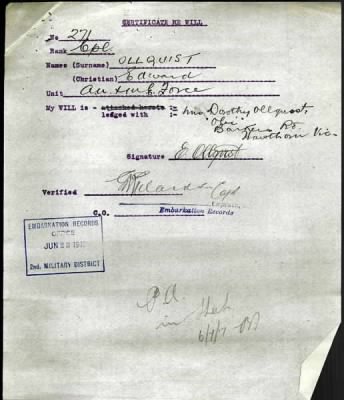 CERTIFICATE RE WILL
No 271
Rank Cpl
Names (Surname) OLLQUIST
(Christian) Edward
Unit Au. Force
My WILL is - attached hereto :- Mrs Dorothy Ollquist,
lodged with :-
Barkers Rd
Hawthorn Vic.
Signature E. Ollquist
Verified Capt
Captain,
C.O. Embarkation Records
EMBARKATION RECORDS
OFFICE
JUN 191
2nd. MILITARY DISTRICT
P.A.
in
6/7/17